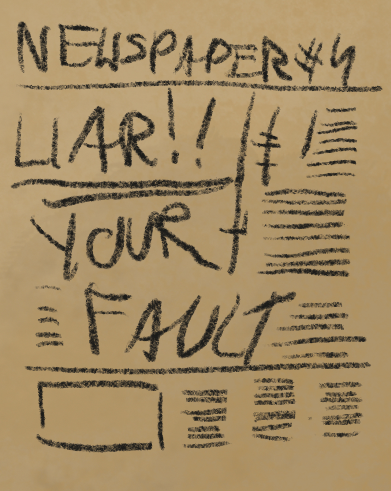 NEWSPAPER #4
LIAR!!
YOUR
FAULT